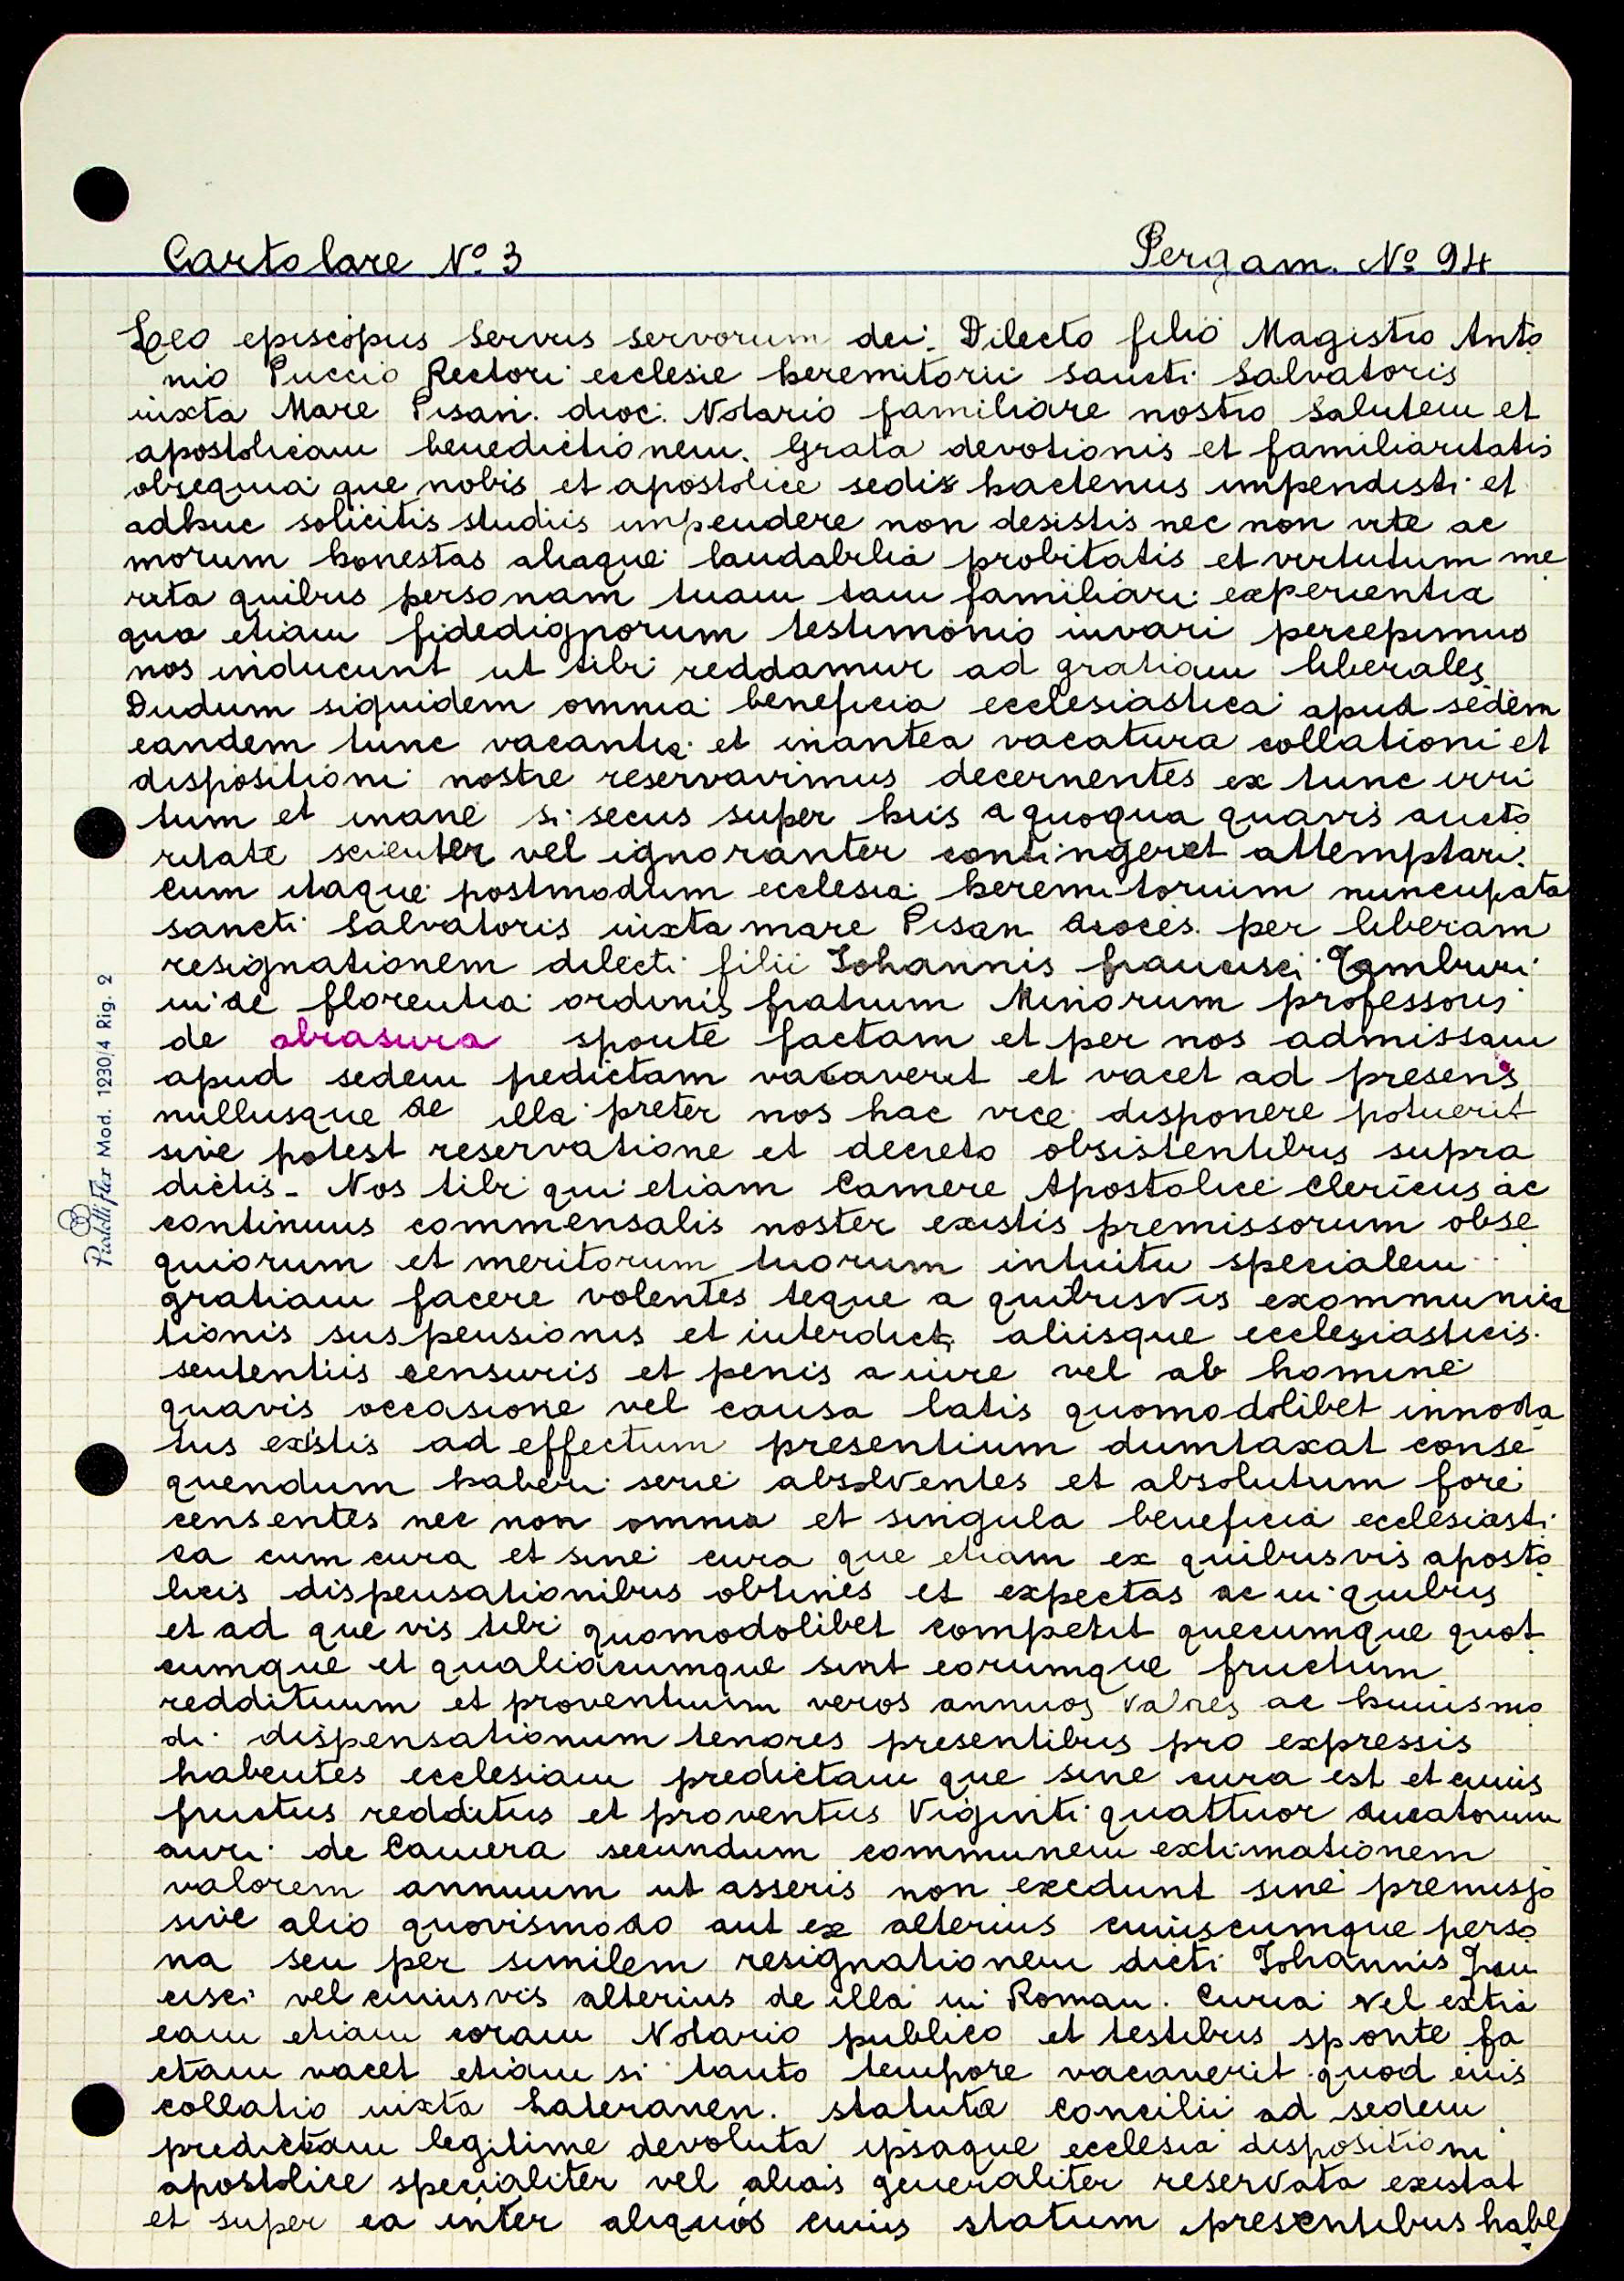 Cartolare Nº 3
Pergam. Nº 94
Leo episcopus Servus servorum dei. Dilecto filio Magistro Anto
nio Puccio Rectori ecclesie heremitorii sancti Salvatoris
iuxta Mare Pisan. dioc. Notario familiare nostro salutem et
apostolicam benedictionem. Grata devotionis et familiaritatis
obsequia que nobis et apostolice sedis hactenus impendisti et
adhuc solicitis studiis impendere non desistis nec non vite ac
morum honestas aliaque laudabilia probitatis et virtutum me
rita quibus personam tuam tam familiari experientia
qua etiam fidedignorum testimonio iuvari percepimus
nos inducunt ut tibi reddamur ad gratiam liberales
Dudum siquidem omnia beneficia ecclesiastica apud sedem
eandem tunc vacantia et inantea vacatura collationi et
dispositioni nostre reservavimus decernentes ex tunc irri
tum et inane si secus super his a quoqua quavis aucto
ritate scienter vel ignoranter contingeret attemptari.
cum itaque postmodum ecclesia heremitorium nuncupata
sancti Salvatoris iuxta mare Pisan dioces. per liberam
resignationem dilecti filii Johannis francisci Tamburi
ni de florentia ordinis fratrum Minorum professoris
de abrasura sponte factam et per nos admissam
apud sedem predictam vacaverit et vacet ad presens
nullusque de illa preter nos hac vice disponere potuerit
sive potest reservatione et decreto obsistentibus supra
dictis - Nos tibi qui etiam Camere Apostolice Clericus ac
continuus commensalis noster existis premissorum obse
quiorum et meritorum tuorum intuitu specialem
gratiam facere volentes teque a quibusvis exommunica
tionis suspensionis et interdicti aliisque ecclesiasticis
sententiis censuris et penis a iure vel ab homine
quavis occasione vel causa latis quomodolibet innoda
tus existis ad effectum presentium dumtaxat conse
quendum haberi serie absolventes et absolutum fore
censentes nec non omnia et singula beneficia ecclesiasti
ca cum cura et sine cura que etiam ex quibusvis aposto
licis dispensationibus obtines et expectas ac in quibus
et ad que vis tibi quomodolibet competit quecumque quot
cumque et qualiacumque sint eorumque fructum
reddituum et proventuum veros annuos valores ac huiusmo
di dispensationum tenores presentibus pro expressis
habentes ecclesiam predictam que sine cura est et cuius
fructus redditus et proventus Viginti quattuor ducatorum
auri de Camera secundum communem extimationem
valorem annuum ut asseris non excedunt sine premisso
sive alio quovismodo aut ex alterius cuiuscumque perso
na seu per similem resignationem dicti Johannis Fran
cisci vel cuiusvis alterius de illa in Roman. Curia vel extra
eam etiam coram Notario publico et testibus sponte fa
ctam vacet etiam si tanto tempore vacaverit quod eius
collatio iuxta Lateranen. statuta concilii ad sedem
predictam legitime devoluta ipsaque ecclesia dispositioni
apostolice specialiter vel alias generaliter reservata existat
et super ea inter aliquos cuius statum presentibus habe
Pratelli Flex Mod. 1230/4 Rig. 2